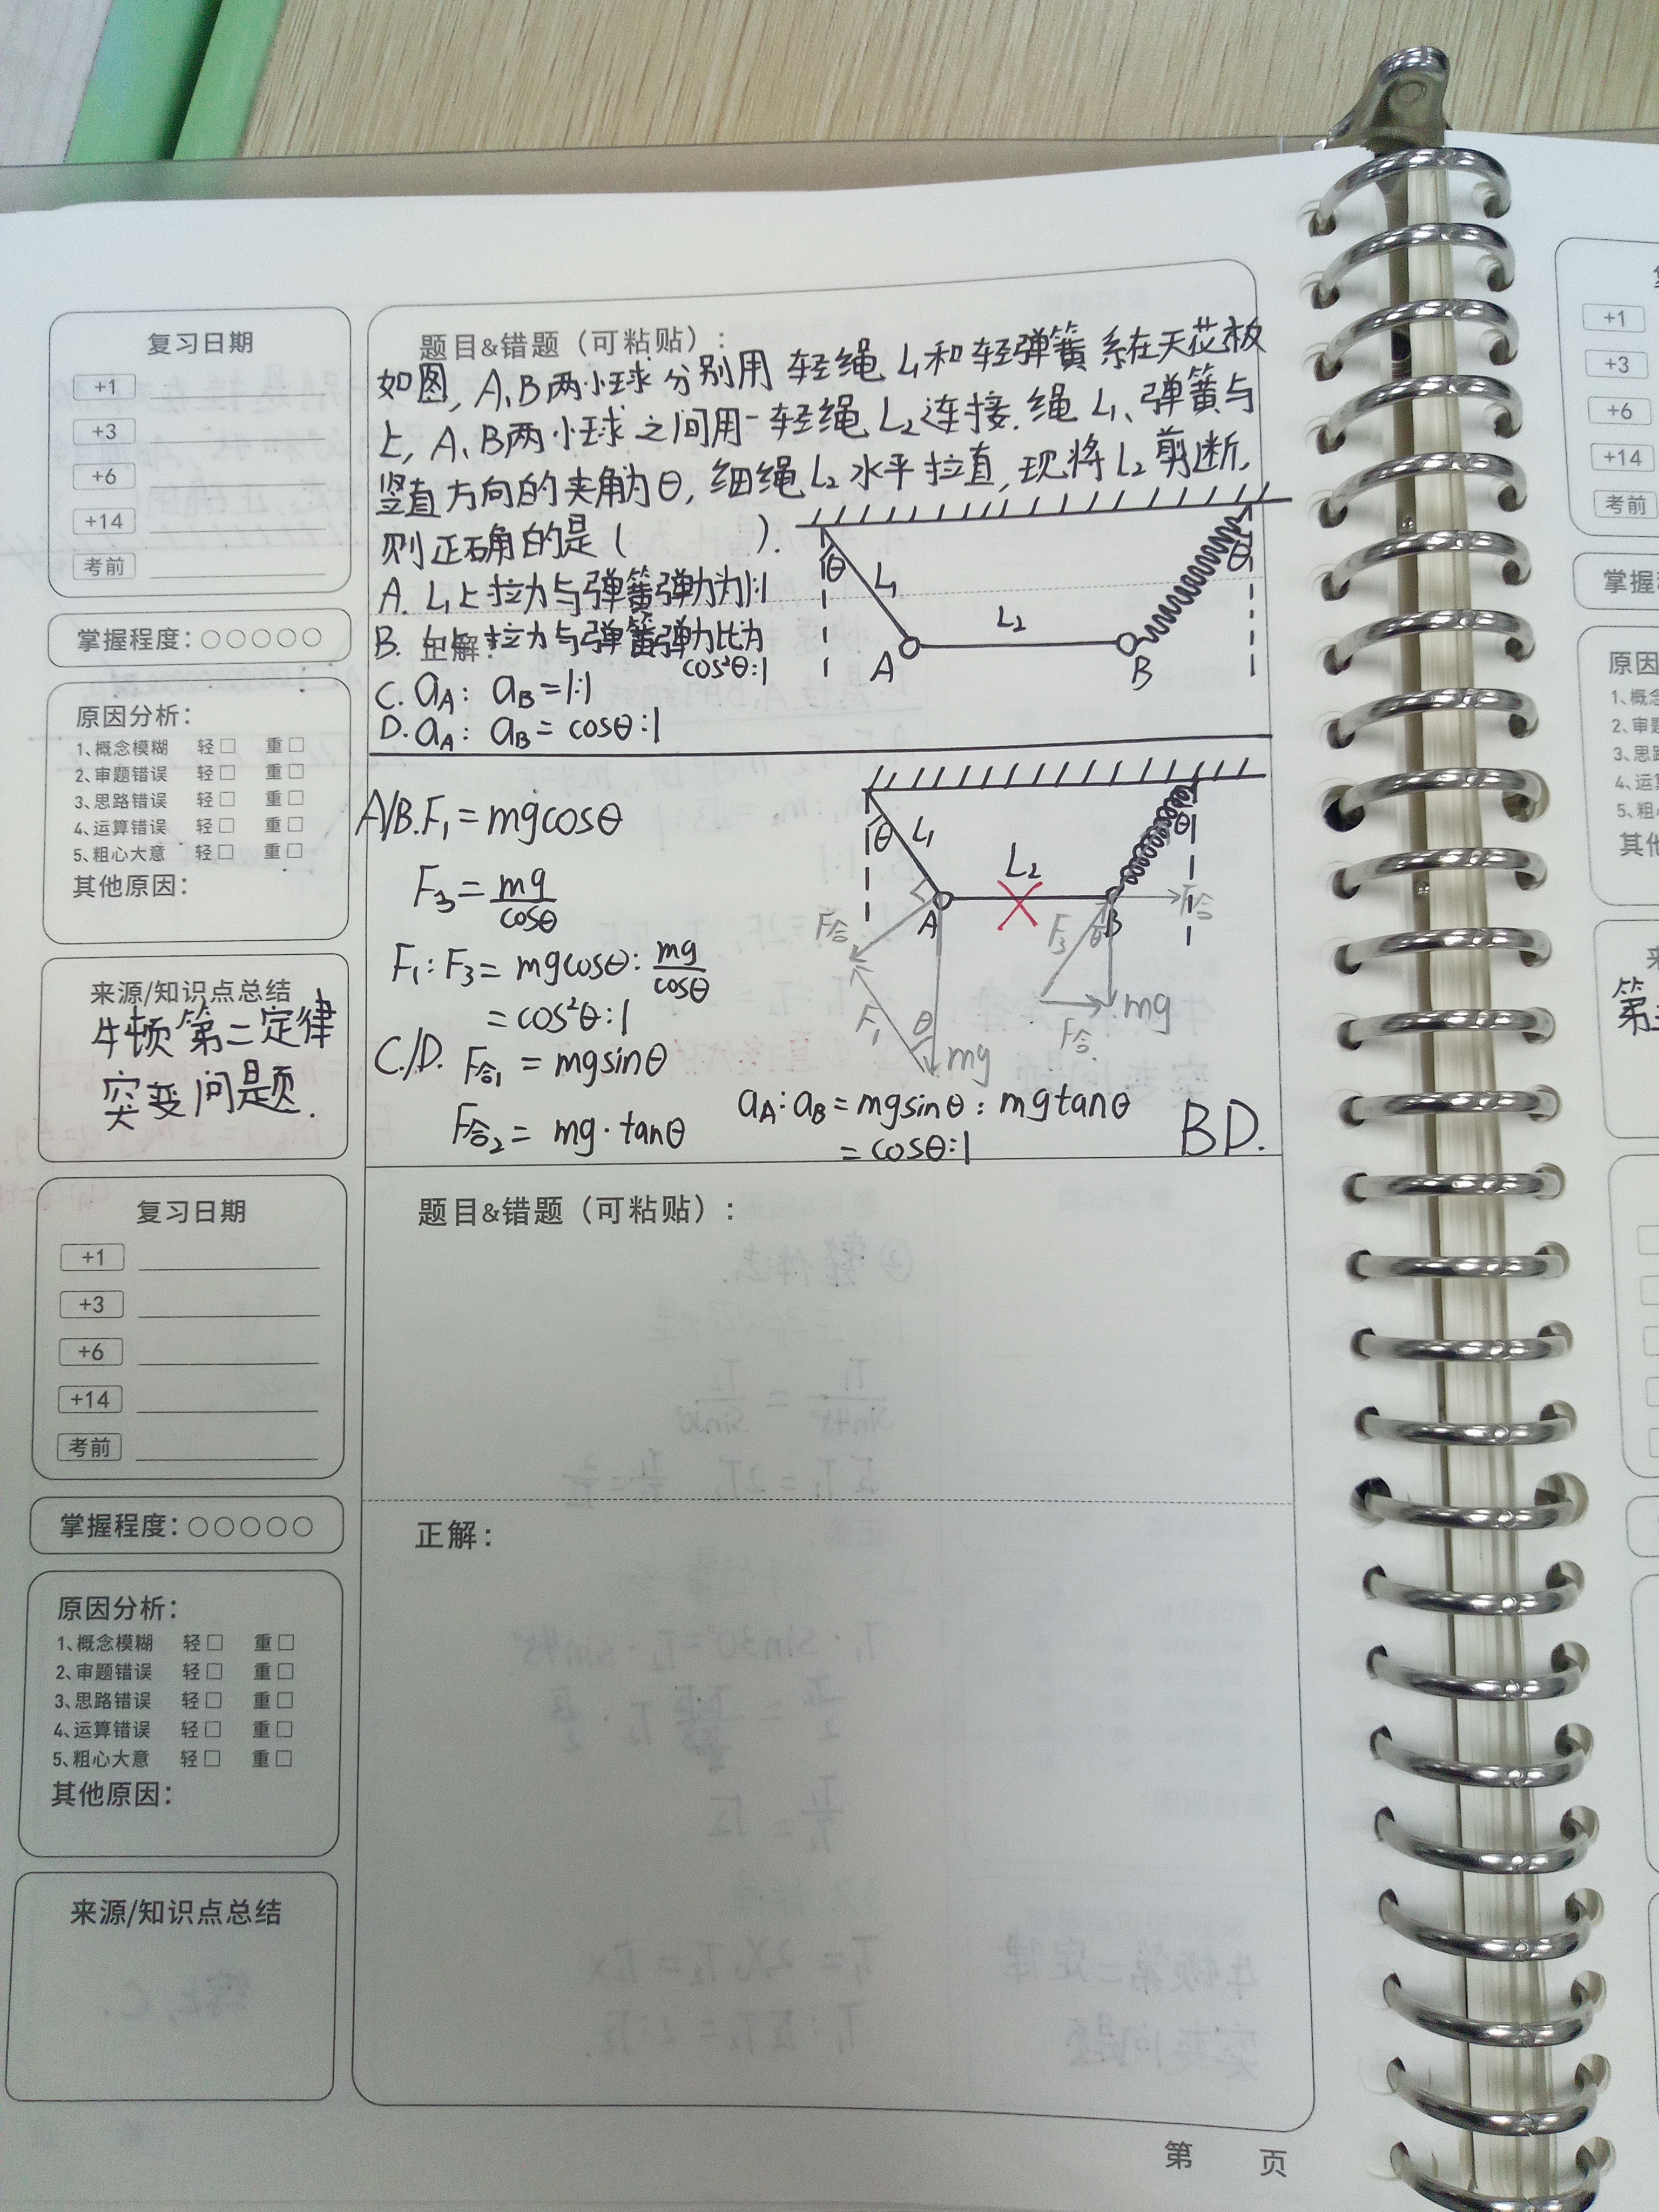 复习日期
+1
+3
+6
+14
考前
掌握程度：○○○○○
原因分析：
1、概念模糊 轻□ 重□
2、审题错误 轻□ 重□
3、思路错误 轻□ 重□
4、运算错误 轻□ 重□
5、粗心大意 轻□ 重□
其他原因：
来源/知识点总结
牛顿第二定律
突变问题.
题目&错题（可粘贴）：
如图, A、B两小球分别用 轻绳 L1和轻弹簧 系在天花板
上, A、B两小球之间用一轻绳 L2连接. 绳 L1、弹簧与
竖直方向的夹角为θ, 细绳 L2 水平拉直, 现将 L2 剪断,
则正确的是（ ）.
A. L1上拉力与弹簧弹力为1:1
B. 拉力与弹簧弹力比为
cos²θ:1
C. aA: aB=1:1
D. aA: aB= cosθ:1
θ
L1
L2
A
B
θ
A/B. F1=mgcosθ
F3= mg/cosθ
F1:F3= mgcosθ: mg/cosθ
= cos²θ:1
C/D. F合1 = mgsinθ
F合2= mg·tanθ
aA:aB=mgsinθ: mgtanθ
= cosθ:1
BD.
θ
L1
L2
θ
A
B
F合
F1
θ
mg
F3
θ
F合
mg
F合
复习日期
+1
+3
+6
+14
考前
掌握程度：○○○○○
原因分析：
1、概念模糊 轻□ 重□
2、审题错误 轻□ 重□
3、思路错误 轻□ 重□
4、运算错误 轻□ 重□
5、粗心大意 轻□ 重□
其他原因：
来源/知识点总结
题目&错题（可粘贴）：
正解：
第 页
+1
+3
+6
+14
考前